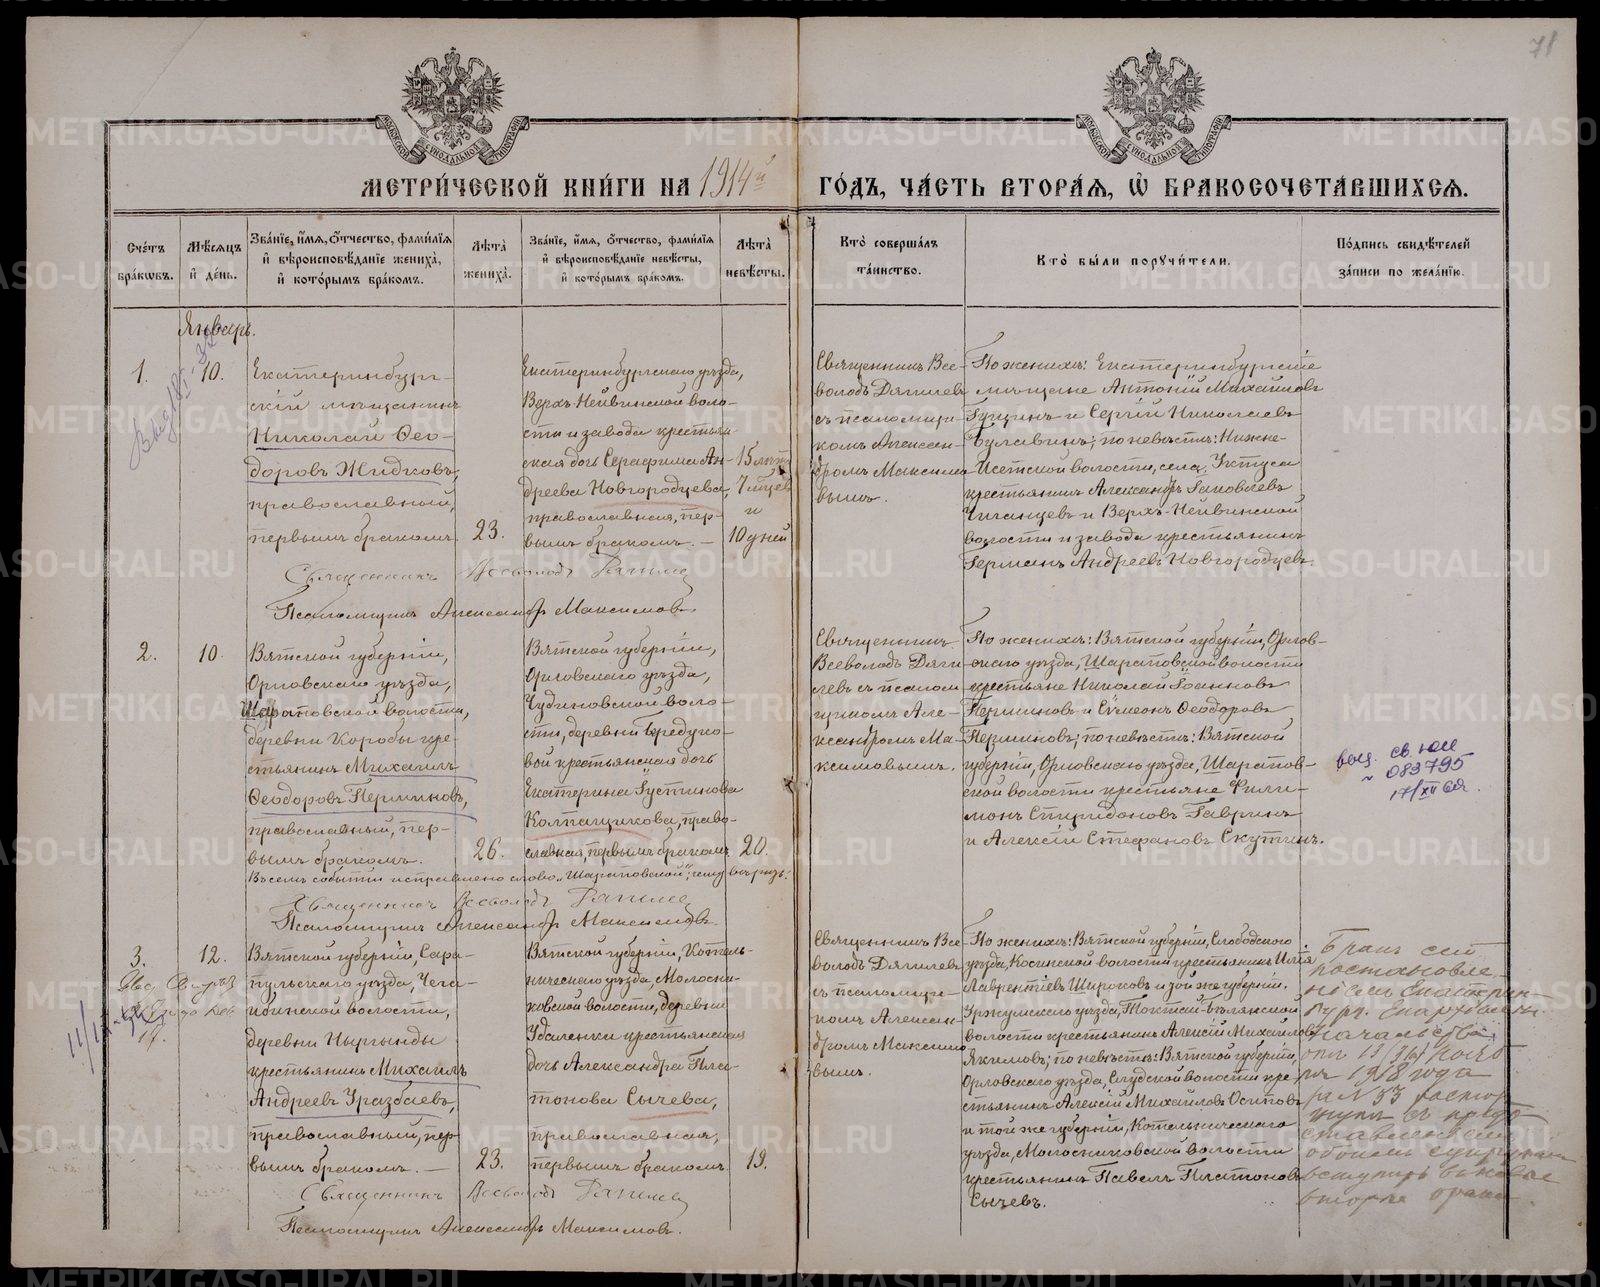 71
МЕТРИ́ЧЕСКОЙ КНИ́ГИ НА 1914й ГО́ДЪ, ЧА́СТЬ ВТОРА́Я, Ѽ БРАКОСОЧЕТА́ВШИХСЯ.
Сче́тъ бра́кѡвъ.
Мѣ́сяцъ и҆ де́нь.
Зва́нїе, и҆́мя, ѻ҆́тчество, фами́лїя и҆ вѣроисповѣ́данїе жениха̀, и҆ кото́рымъ бра́комъ.
Лѣ́та жениха̀.
Зва́нїе, и҆́мя, ѻ҆́тчество, фами́лїя и҆ вѣроисповѣ́данїе невѣ́сты, и҆ кото́рымъ бра́комъ.
Лѣ́та невѣ́сты.
Кто̀ соверша́лъ та́инство.
Кто̀ бы́ли порꙋчи́тели.
По́дпись свидѣ́телей за́писи по жела́нїю.
Январь.
1.
10.
Екатеринбург-
скій мѣщанинъ
Николай Ѳео-
доровъ Жидковъ,
православный,
первымъ бракомъ.
23.
Екатеринбургскаго уѣзда,
Верхъ-Нейвинской воло-
сти и завода крестьян-
ская дочь Серафима Ан-
дреева Новгородцева,
православная, пер-
вымъ бракомъ. —
15 лѣтъ
7 мѣсяц
и
10 дней
Священникъ Все-
володъ Дягилевъ
съ псаломщи-
комъ Алексан-
дромъ Максимо-
вымъ.
По женихѣ: Екатеринбургскіе
мѣщане Антоній Михайловъ
Гущинъ и Сергій Николаевъ
Булавинъ; по невѣстѣ: Нижне-
Исетской волости, села Уктуса
крестьянинъ Александръ Іаковлевъ
Чиганцевъ и Верхъ-Нейвинской
волости и завода крестьянинъ
Германъ Андреевъ Новгородцевъ.
Священникъ Всеволодъ Дягилев
Псаломщикъ Александръ Максимовъ.
2.
10.
Вятской губерніи,
Орловскаго уѣзда,
Шараповской волости,
деревни Коробы кре-
стьянинъ Михаилъ
Ѳеодоровъ Перминовъ,
православный, пер-
вымъ бракомъ.
26.
Вятской губерніи,
Орловскаго уѣзда,
Чудиновской воло-
сти, деревни
крестьянская дочь
Екатерина Іустинова
Колпащикова, право-
славная, первымъ бракомъ.
20.
Священникъ
Всеволодъ Дяги-
левъ съ псалом-
щикомъ Але-
ксандромъ Ма-
ксимовымъ.
По женихѣ: Вятской губерніи, Орлов-
скаго уѣзда, Шараповской волости
крестьяне Николай Іоанновъ
Перминовъ и Сѵмеонъ Ѳеодоровъ
Перминовъ; по невѣстѣ: Вятской
губерніи, Орловскаго уѣзда, Шарапов-
ской волости крестьяне Фили-
монъ Спиридоновъ Гавринъ
и Алексій Стефановъ Скутинъ.
083795
Въ семъ событіи исправлено слово „Шараповской",
Священникъ Всеволодъ Дягилев
Псаломщикъ Александръ Максимовъ.
3.
12.
Вятской губерніи, Сара-
пульскаго уѣзда, Чега-
ндинской волости,
деревни Ныргынды
крестьянинъ Михаилъ
Андреевъ Уразбаевъ,
православный, пер-
вымъ бракомъ. —
23.
Вятской губерніи, Котель-
ническаго уѣзда, Молосни-
ковской волости, деревни
Удаленки крестьянская
дочь Александра Пла-
тонова Сычева,
православная,
первымъ бракомъ.
19.
Священникъ Все-
володъ Дягилевъ
съ псаломщи-
комъ Алексан-
дромъ Максимо-
вымъ.
По женихѣ: Вятской губерніи, Слободского
уѣзда, Косинской волости крестьянинъ Илія
Лаврентіевъ Широковъ и той же губерніи,
Уржумскаго уѣзда, Токтай-Бѣлякской
волости крестьянинъ Алексій Михайловъ
Якимовъ; по невѣстѣ: Вятской губерніи,
Орловскаго уѣзда, Слудской волости кре-
стьянинъ Алексій Михайловъ Осиповъ
и той же губерніи, Котельническаго
уѣзда, Молосниковской волости
крестьянинъ Павелъ Платоновъ
Сычевъ.
Бракъ сей
постановле-
ніемъ Екатерин-
бург. Епархіальн.
Начальства
1918 года
за № 33 растор-
гнутъ съ предо-
ставленіемъ
обоимъ супругамъ
вступить въ новые
вторые браки.
Священникъ Всеволодъ Дягилев
Псаломщикъ Александръ Максимовъ.
METRIKI.GASO-URAL.RU